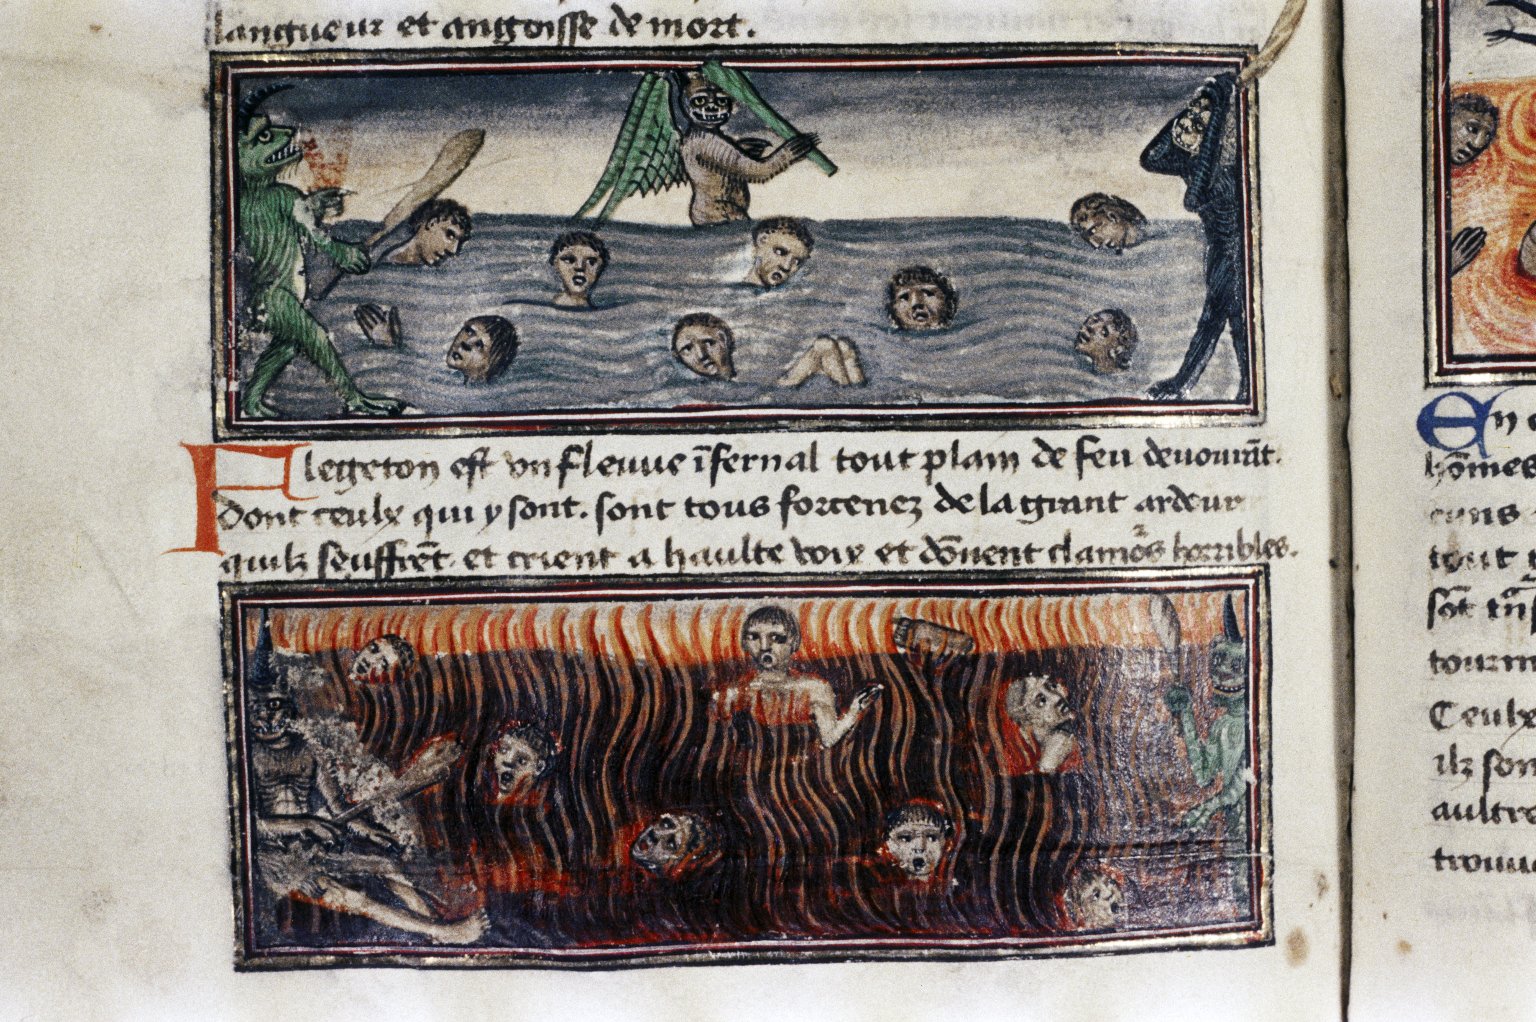 langueur et angoisse de mort.
Flegeton est vn fleuue īfernal tout plain de feu deuourāt.
dont ceulx qui y sont. sont tous forcenez de la grant ardeur
quilz seuffrēt. et crient a haulte voix et dōnent clamo's horribles.
En
hōmes
cuns
tout
sōt
tourm
Ceulx
ilz son
aultre
trouu